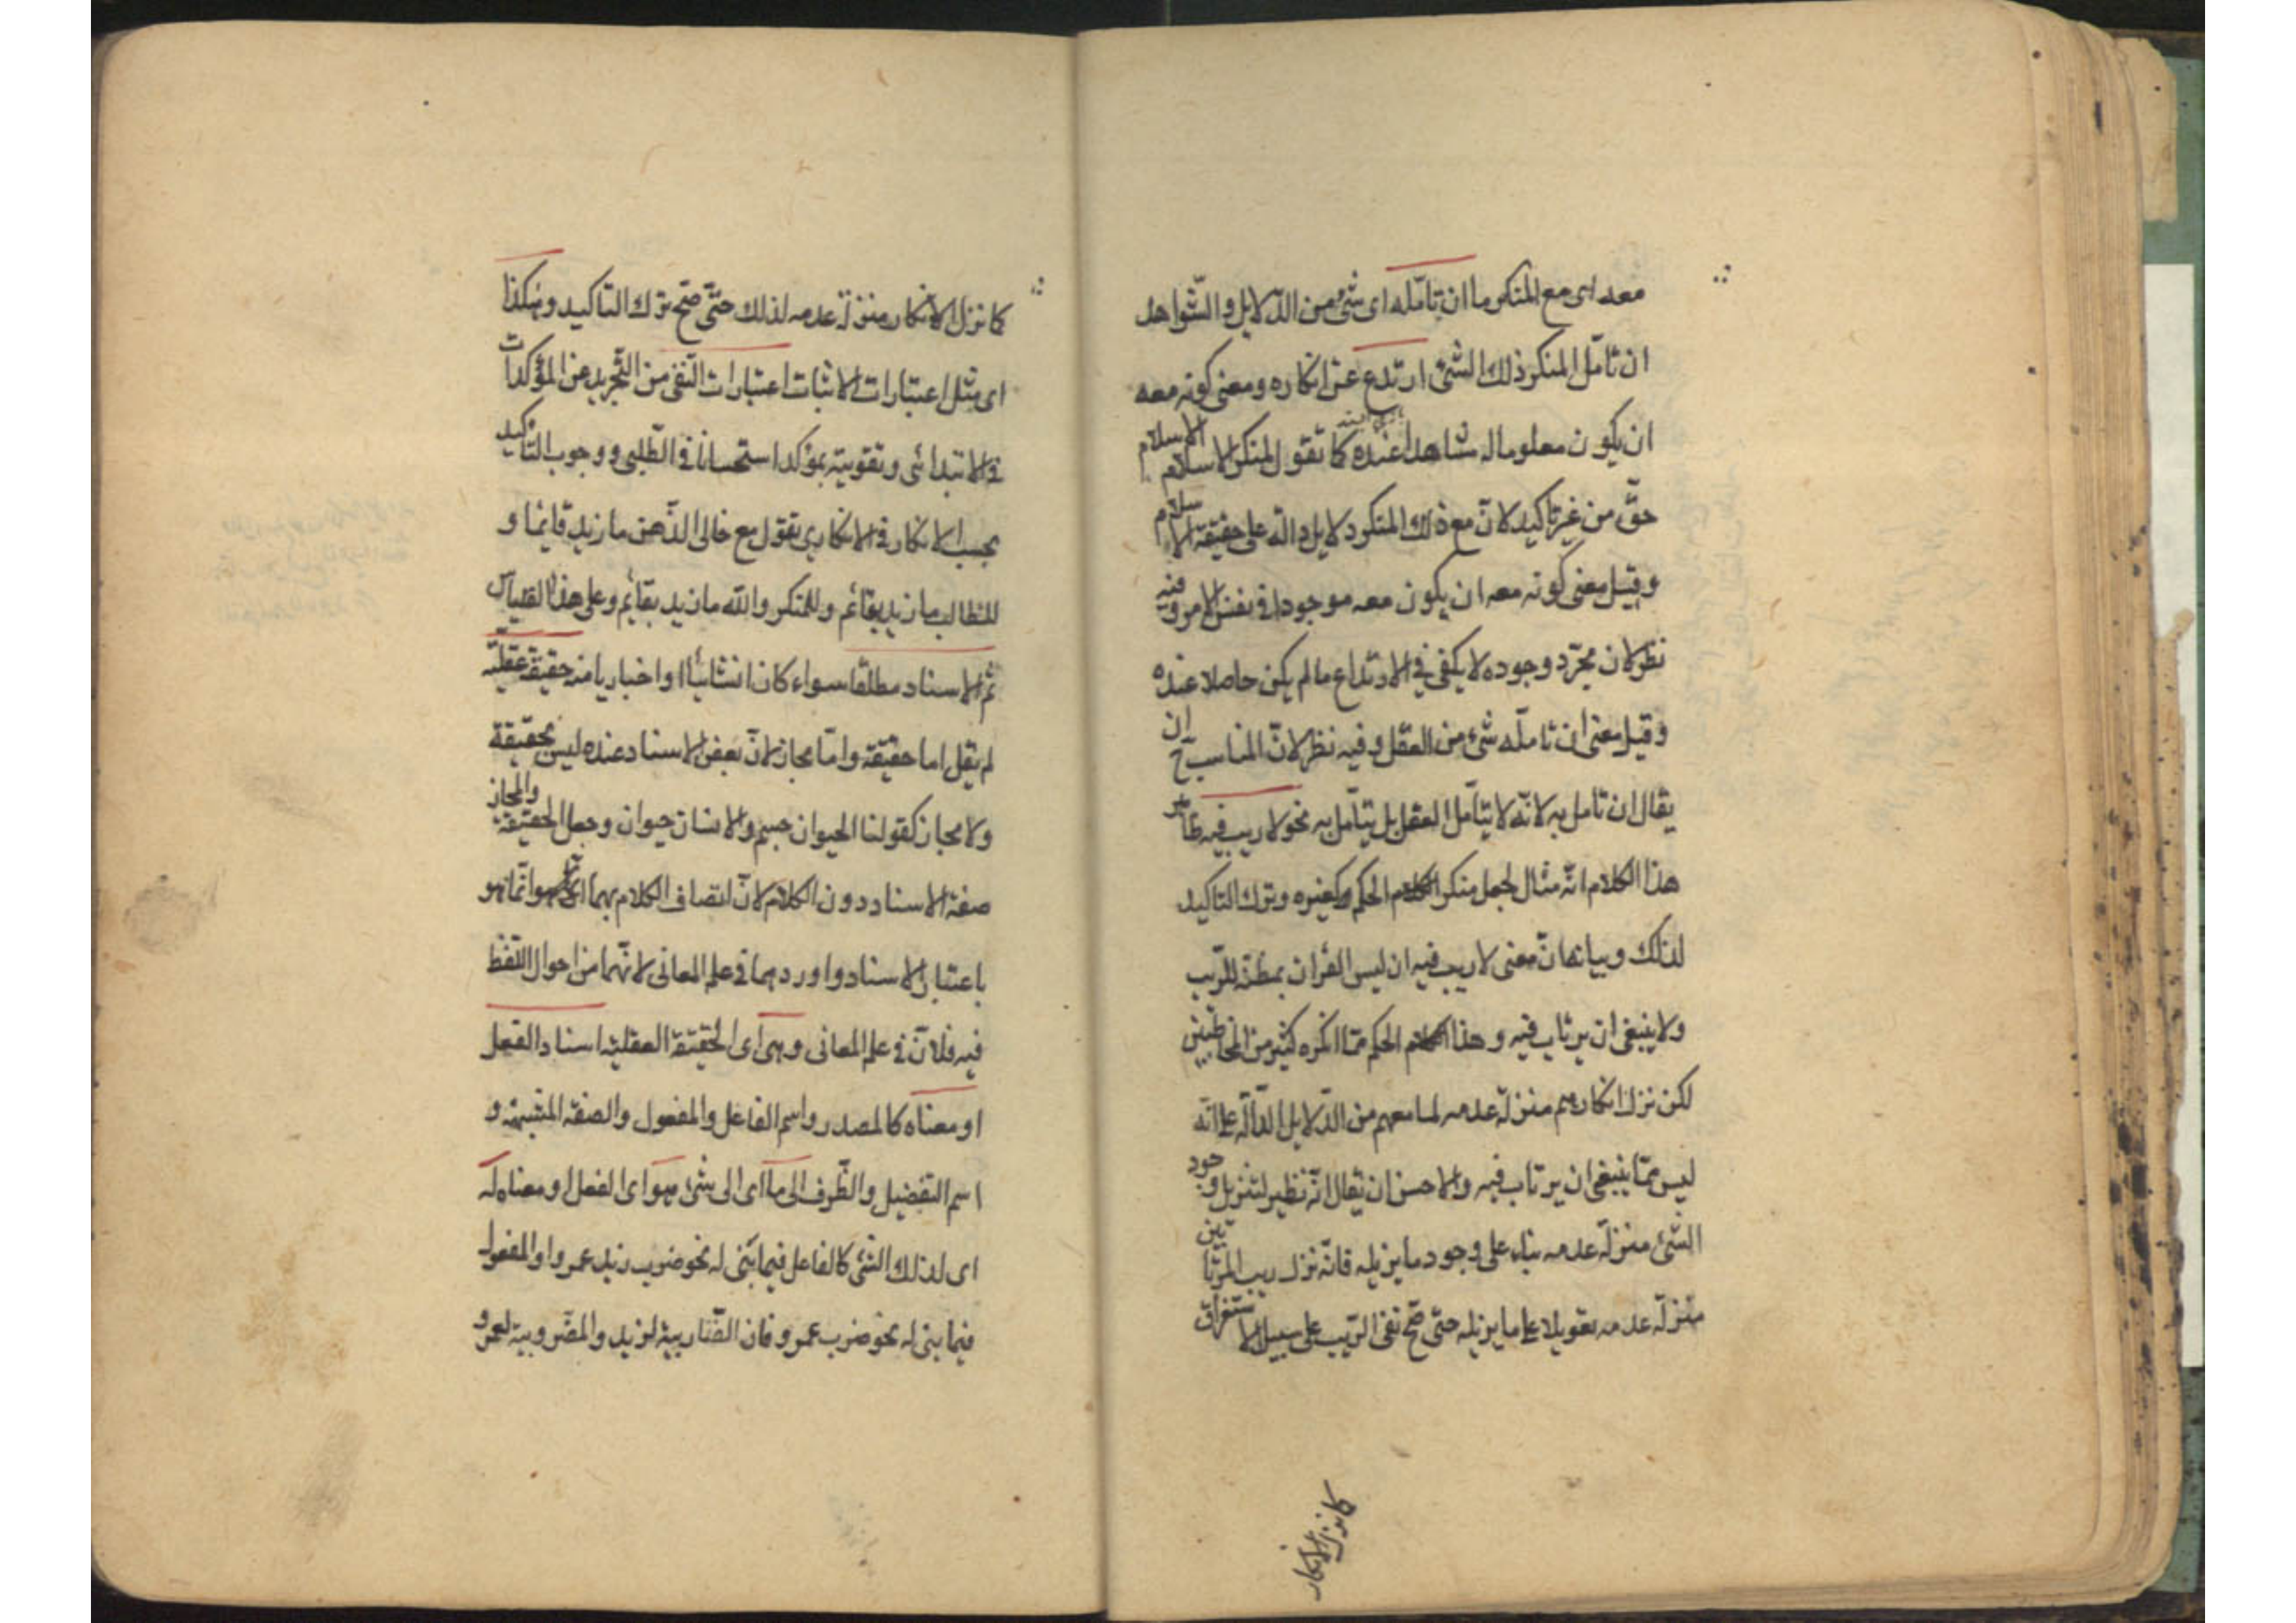 معه اى مع المنكر ما ان تامّله اى شئ من الدّلايل والشّواهد
ان تامّل المنكر ذلك الشئ ارتدع عن انكاره ومعنى كونه معه
ان يكون معلوما له مشاهدا عنده كما تقول لمنكر الاسلام الاسلام
حقّ من غير تاكيد لانّ مع ذلك المنكر دلايل دالّة على حقيقة الاسلام
وقيل معنى كونه معه ان يكون معه موجودا فى نفس الامر وفيه
نظر لان مجرّد وجوده لا يكفى فى الارتداع ما لم يكن حاصلا عنده
وقيل معنى ان تامّله شئ من العقل وفيه نظر لانّ المناسب ح ان
يقال ان تامل به لانّه لا يتأمّل العقل بل يتأمّل به نحو لا ريب فيه ظاهر
هذا الكلام انّه مثال لجعل منكر الحكم كغيره وترك التاكيد
لذلك وبيانه انّ معنى لا ريب فيه ان ليس القرأن بمظنّة للرّيب
ولا ينبغى ان يرتاب فيه وهذا الحكم ممّا انكره كثير من المخاطبين
لكن نزل انكارهم منزلة عدمه لما معهم من الدّلايل الدّالّة على انّه
ليس ممّا ينبغى ان يرتاب فيه والاحسن ان يقال انّه نظير لتنزيل وجود
الشئ منزلة عدمه بناء على وجود ما يزيله فانّه نزل ريب المرتابين
منزلة عدمه تعويلا على ما يزيله حتّى صحّ نفى الرّيب على سبيل الاستغراق
كما نزل الانكار
كما نزل الانكار منزلة عدمه لذلك حتّى صحّ ترك التاكيد وهكذا
اى مثل اعتبارات الاثبات اعتبارات النّفى من التّجريد عن المؤكدات
فى الابتدائى وتقويته بمؤكد استحسانا فى الطّلبى ووجوب التّأكيد
بحسب الانكار فى الانكارى تقول مع خالى الذّهن ما زيد قايما و
للطالب ما زيد بقائم وللمنكر والله ما زيد بقائم وعلى هذا القياس
ثم الاسناد مطلقا سواء كان انشائيّا او اخباريا منه حقيقة عقليّة
لم يقل اما حقيقة وامّا مجاز لانّ بعض الاسناد عنده ليس بحقيقة
ولا مجاز كقولنا الحيوان جسم والانسان حيوان وجعل الحقيقة والمجاز
صفة الاسناد دون الكلام لانّ اتصاف الكلام بهما انّما هو
باعتبار الاسناد واوردهما فى علم المعانى لانّهما من احوال اللّفظ
فيه فلانّ فى علم المعانى وهى اى الحقيقة العقليّة اسناد الفعل
او معناه كالمصدر واسم الفاعل والمفعول والصفة المشبهة و
اسم التفضيل والظّرف الى ما اى الى شئ هو اى الفعل او معناه له
اى لذلك الشّئ كالفاعل فيما بنى له نحو ضرب زيد عمروا والمفعول
فيما بنى له نحو ضرب عمرو فان الضّاربيّة لزيد والمضروبيّة لعمرو